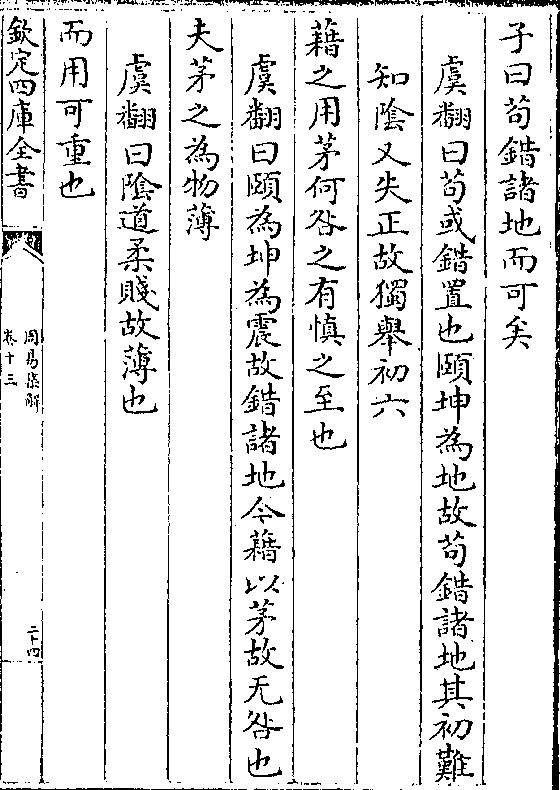 子曰苟錯諸地而可矣
虞翻曰苟或錯置也頤坤為地故苟錯諸地其初難
知隂又失正故獨舉初六
藉之用茅何咎之有慎之至也
虞翻曰頤為坤為震故錯諸地今藉以茅故无咎也
夫茅之為物薄
虞翻曰隂道柔賤故薄也
而用可重也
欽定四庫全書
周易集解
卷十三
二十四